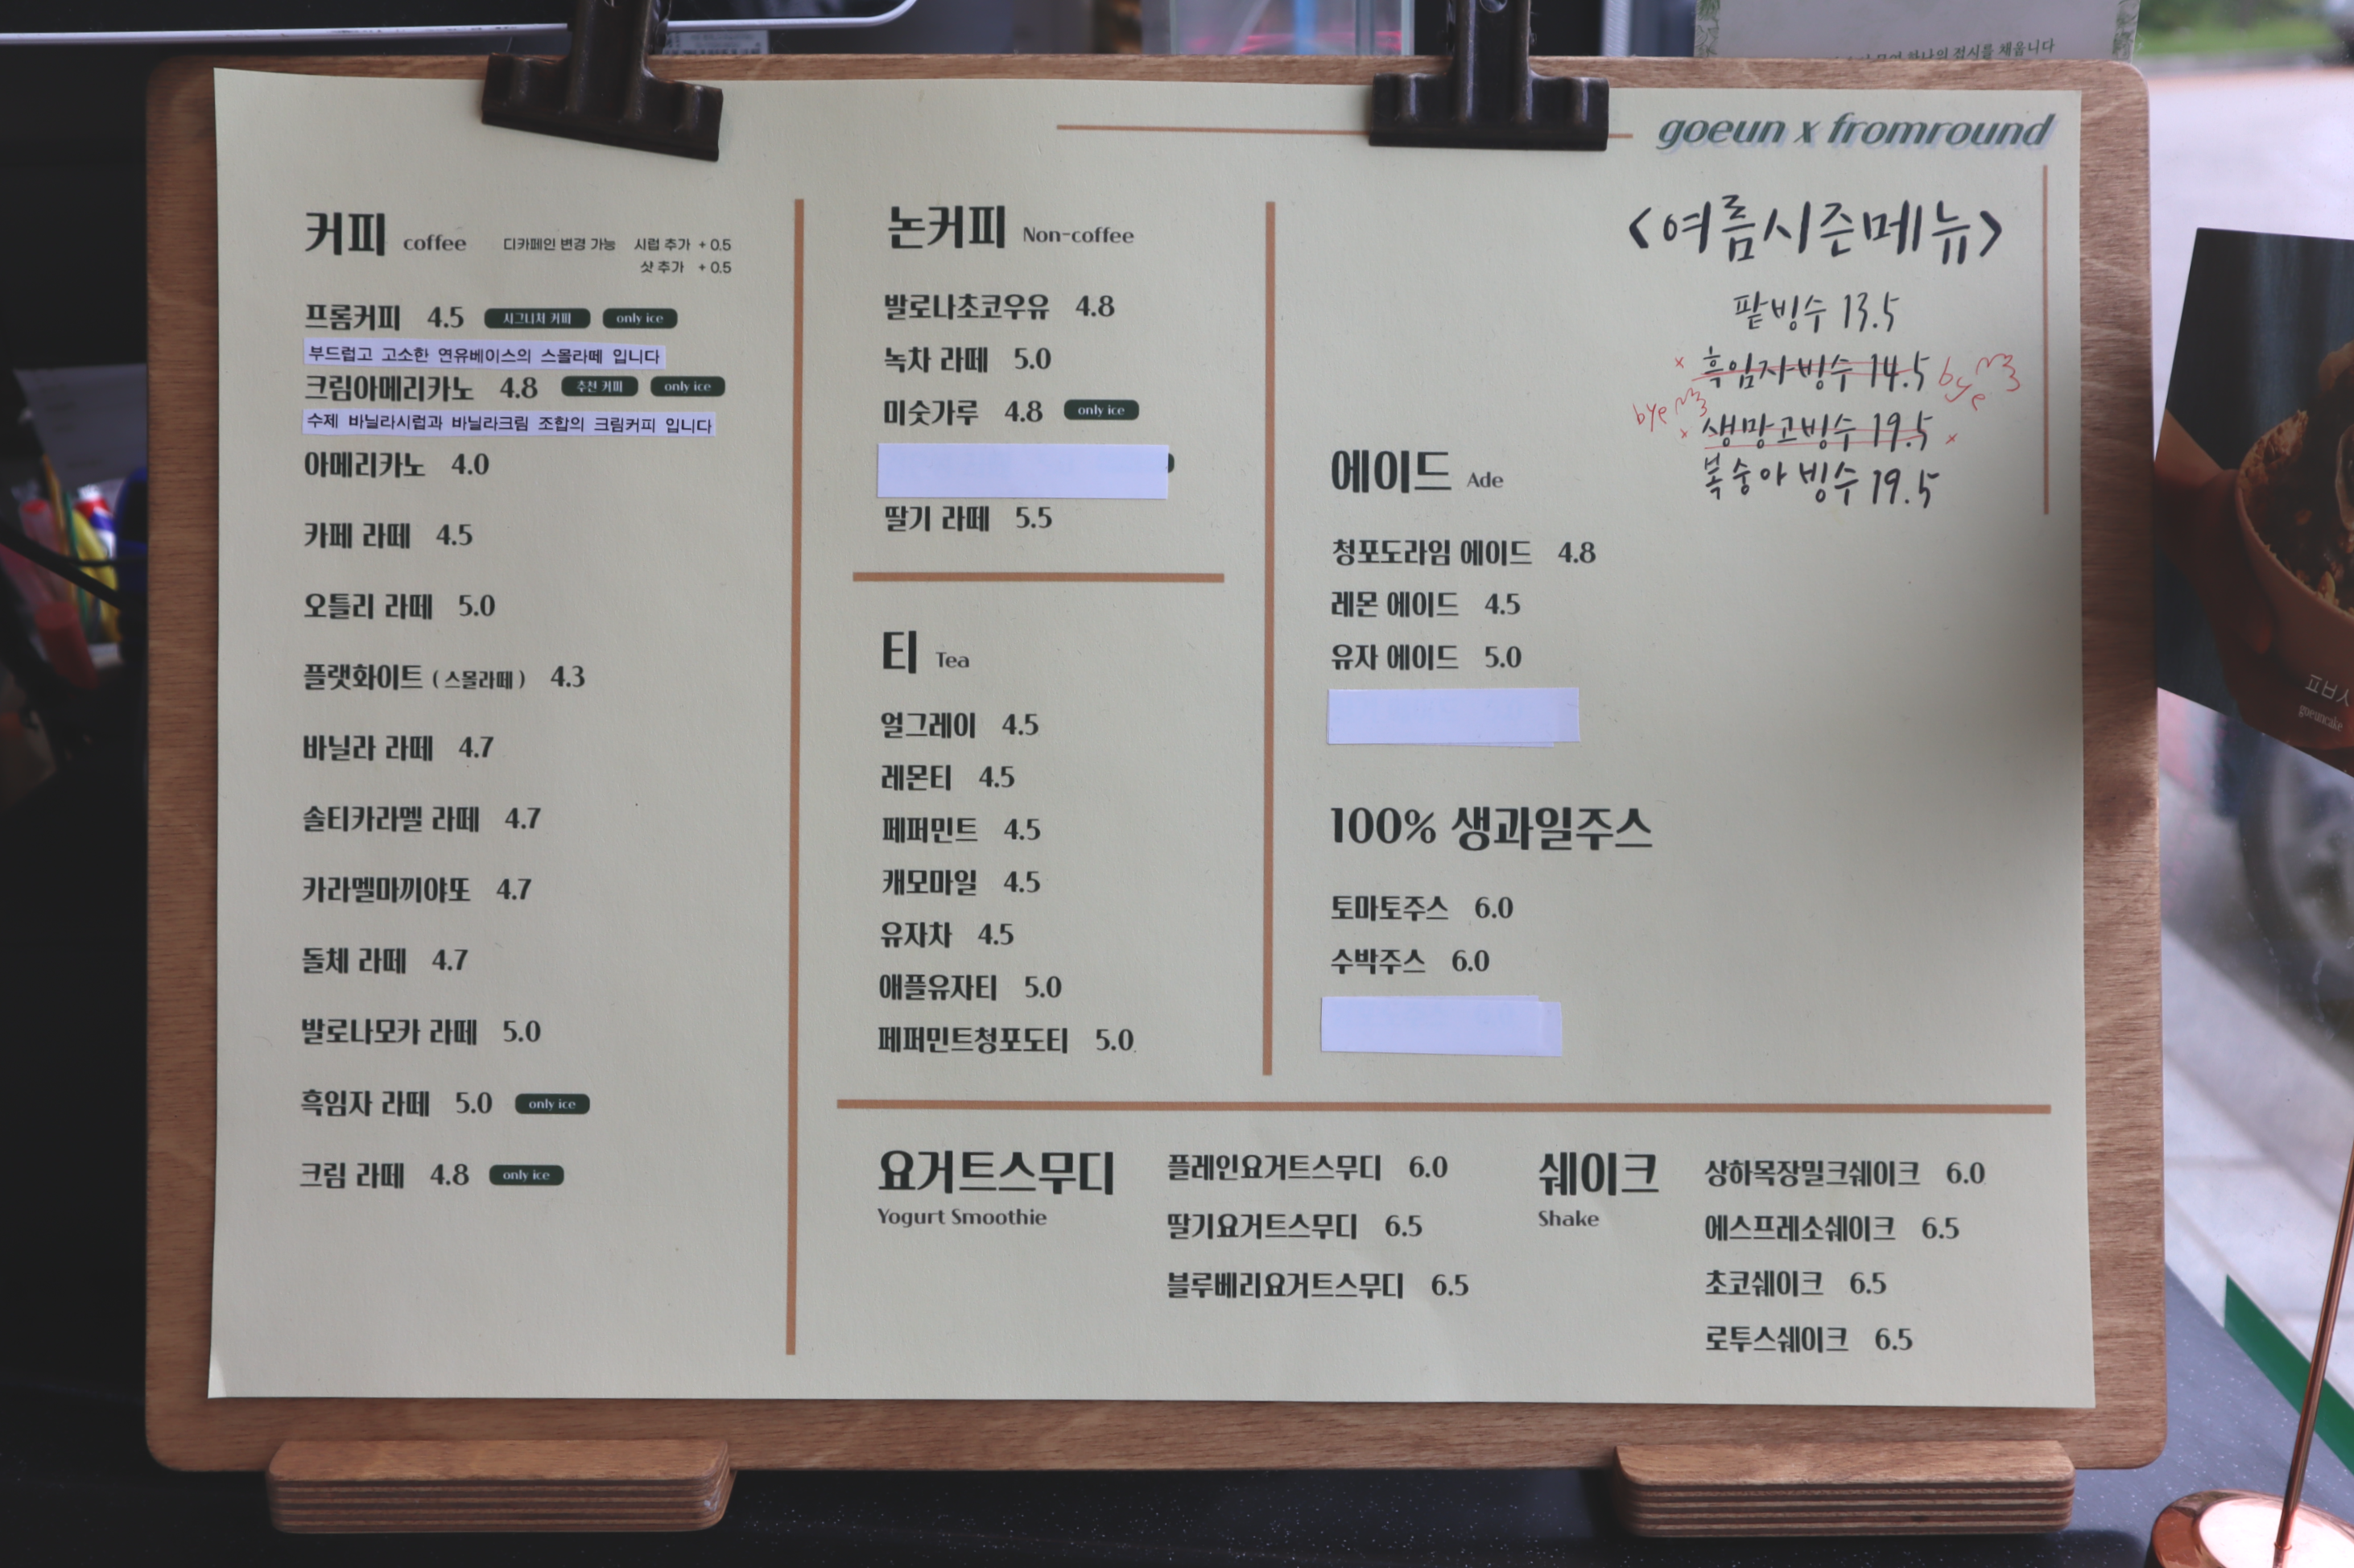 goeun x fromround
커피 coffee 디카페인 변경 가능 시럽 추가 + 0.5
샷 추가 + 0.5
프롬커피 4.5 시그니처 커피 only ice
부드럽고 고소한 연유베이스의 스몰라떼 입니다
크림아메리카노 4.8 추천 커피 only ice
수제 바닐라시럽과 바닐라크림 조합의 크림커피 입니다
아메리카노 4.0
카페 라떼 4.5
오틀리 라떼 5.0
플랫화이트 ( 스몰라떼 ) 4.3
바닐라 라떼 4.7
솔티카라멜 라떼 4.7
카라멜마끼야또 4.7
돌체 라떼 4.7
발로나모카 라떼 5.0
흑임자 라떼 5.0 only ice
크림 라떼 4.8 only ice
논커피 Non-coffee
발로나초코우유 4.8
녹차 라떼 5.0
미숫가루 4.8 only ice
딸기 라떼 5.5
티 Tea
얼그레이 4.5
레몬티 4.5
페퍼민트 4.5
캐모마일 4.5
유자차 4.5
애플유자티 5.0
페퍼민트청포도티 5.0
<여름시즌메뉴>
팥빙수 13.5
흑임자빙수 14.5 bye
bye 생망고빙수 19.5
복숭아 빙수 19.5
에이드 Ade
청포도라임 에이드 4.8
레몬 에이드 4.5
유자 에이드 5.0
100% 생과일주스
토마토주스 6.0
수박주스 6.0
요거트스무디
Yogurt Smoothie
플레인요거트스무디 6.0
딸기요거트스무디 6.5
블루베리요거트스무디 6.5
쉐이크
Shake
상하목장밀크쉐이크 6.0
에스프레소쉐이크 6.5
초코쉐이크 6.5
로투스쉐이크 6.5
하나의 접시를 채웁니다
goeuncake